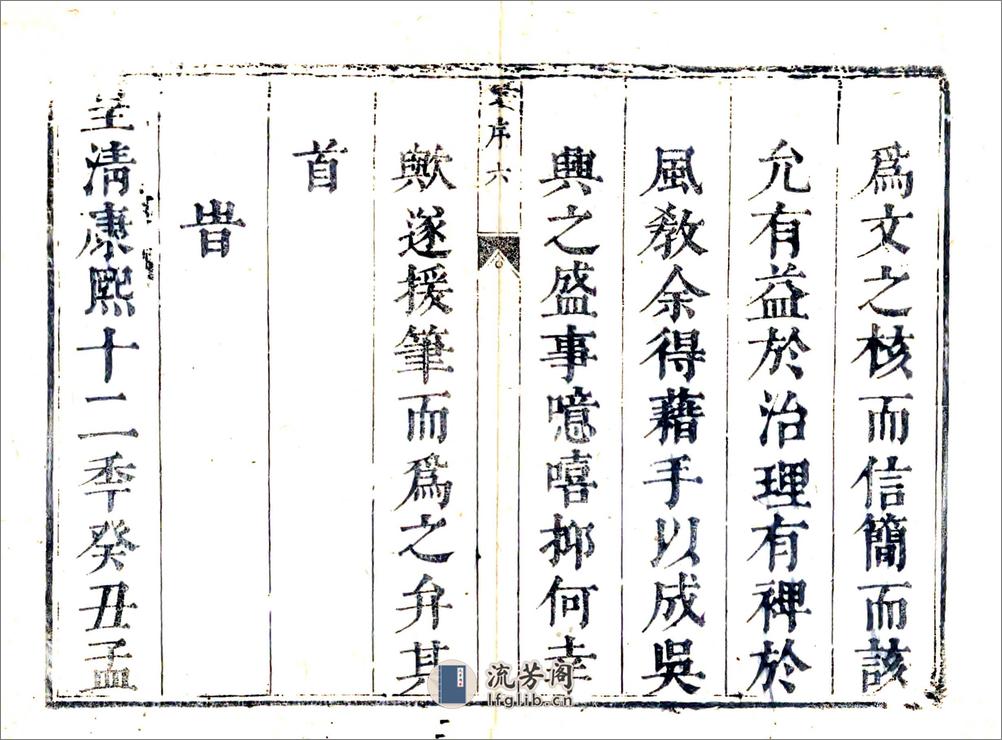 爲文之核而信簡而該
允有益於治理有裨於
風敎余得藉手以成吳
興之盛事噫嘻抑何幸
序 六
歟遂援筆而爲之弁其
首
旹
皇清康熙十二季癸丑孟
流芳阁
lfglib.cn